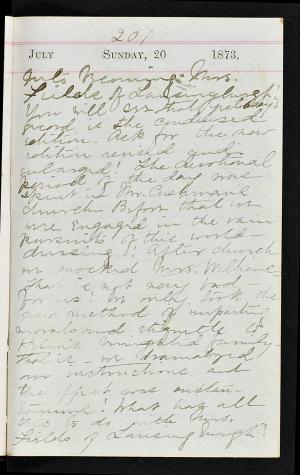 201
JULY SUNDAY, 20 1873.
into Mrs.
Fields of Lansingburgh!
You will see that yesterday's
record is the condensed
edition. Ask for the new
edition revised and
enlarged! The devotional
period of the day was
spent in Mr. Cushman's
church. Before that we
were engaged in the vain
pursuits of this world -
dressing! After church
we mocked Mrs.
That is not very bad
for us! We only took the
new method of imparting
morals and to
family -
that is - we dramatized
our instructions, and
the effect was
What has all
this to do with Mrs.
Fields of Lansingburgh?